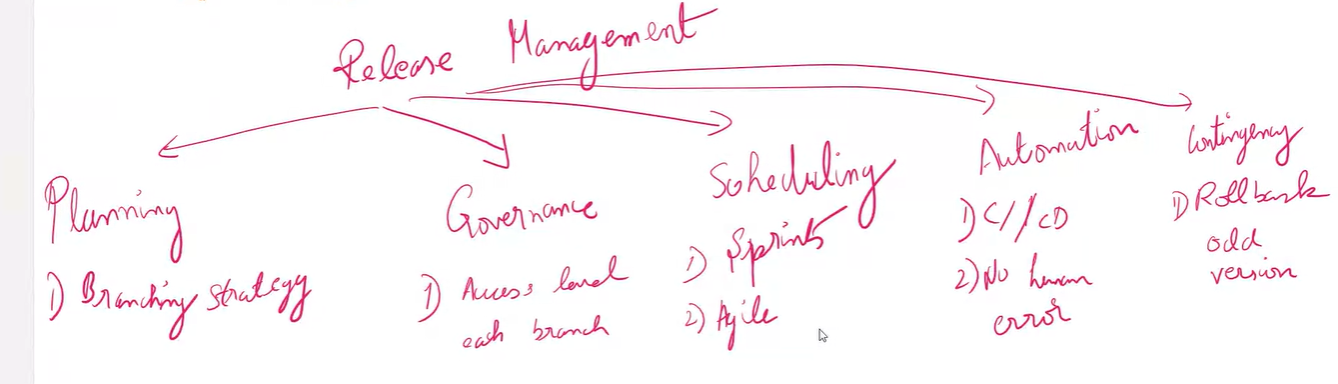 Release Management
Planning
1) Branching strategy
Governance
1) Access level
each branch
Scheduling
1) Sprints
2) Agile
Automation
1) CI/CD
2) No human
error
Contingency
1) Rollback
odd
version